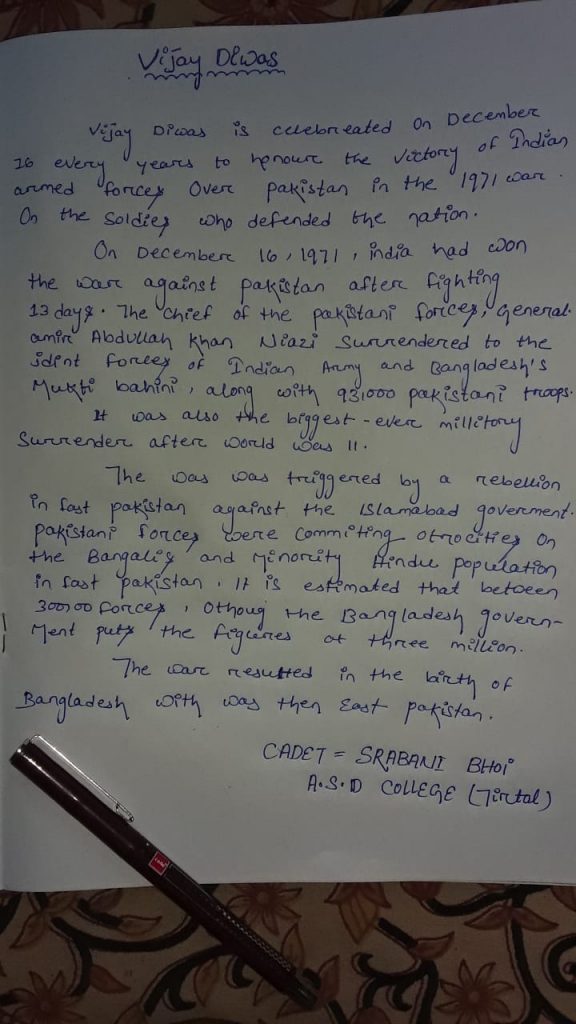 Vijay Diwas
Vijay Diwas is celebreated On December
16 every years to honour the victory of Indian
armed forces Over pakistan in the 1971 war.
On the Soldies who defended the nation.
On December 16, 1971, india had won
the war against pakistan after fighting
13 days. The chief of the pakistani forces, General.
amir Abdullah Khan Niazi Surrendered to the
joint forces of Indian Army and Bangladesh's
Mukti bahini, along with 93,000 pakistani troops.
It was also the biggest-ever millitory
Surrender after world was II.
The was was triggered by a rebellion
in fast pakistan against the Islamabad goverment.
pakistani forces were Commiting otrocities On
the Bangalis and Minority Hindu population
in fast pakistan. It is estimated that between
300000 forces, Othoug the Bangladesh govern-
Ment puts the figures at three million.
The war resulted in the birth of
Bangladesh with was then East pakistan.
CADET = SRABANI BHOI
A.S.D COLLEGE (Tirtal)